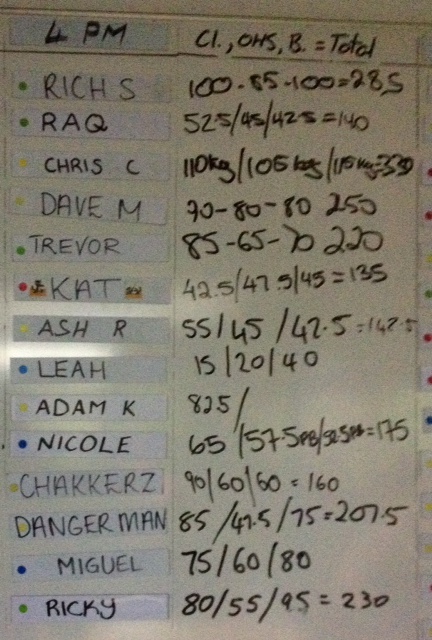 4 PM Cl., OHS, B. = Total
RICH S 100-85-100=285
RAQ 52.5/45/42.5=140
CHRIS C 110kg/105kg/115kg=330
DAVE M 90-80-80 250
TREVOR 85-65-70 220
KAT 42.5/47.5/45=135
ASH R 55/45/42.5=142.5
LEAH 15/20/40
ADAM K 825/
NICOLE 65/57.5PB/52.5PB=175
CHAKKERZ 90/60/60=160
DANGERMAN 85/47.5/75=207.5
MIGUEL 75/60/80
RICKY 80/55/95=230